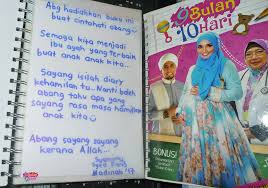 Abg hadiahkan buku ini
buat cintahati abang
Semoga kita menjadi
ibu ayah yang terbaik
buat anak anak kita
Sayang isilah diary
kehamilan tu.. Nanti boleh
abang tahu apa yang
sayang rasa masa hamilkan
anak kita
Abang sayang sayang
kerana Allah...
Madinah '17
9 Bulan
10 Hari
BONUS!